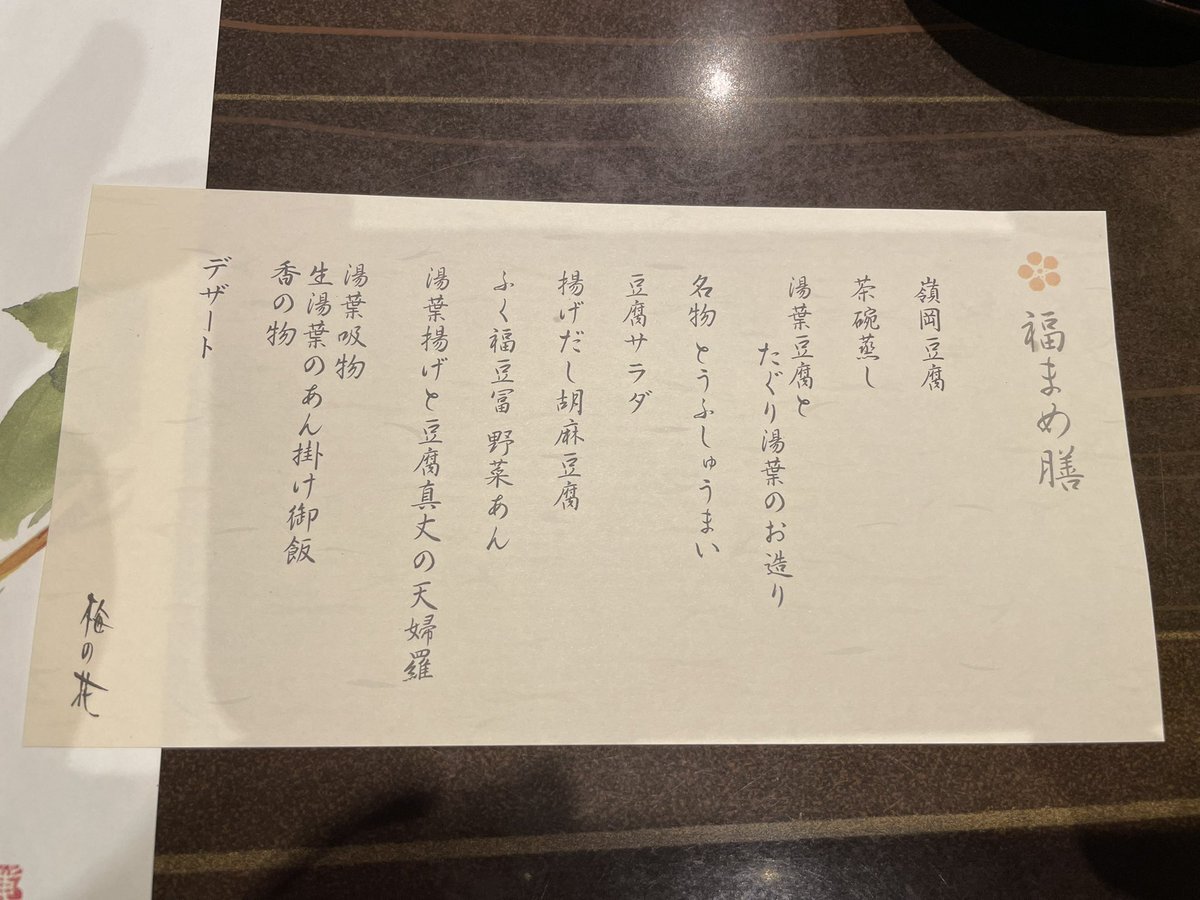 福まめ膳
嶺岡豆腐
茶碗蒸し
湯葉豆腐と
たぐり湯葉のお造り
名物 とうふしゅうまい
豆腐サラダ
揚げだし胡麻豆腐
ふく福豆冨 野菜あん
湯葉揚げと豆腐真丈の天婦羅
湯葉吸物
生湯葉のあん掛け御飯
香の物
デザート
梅の花